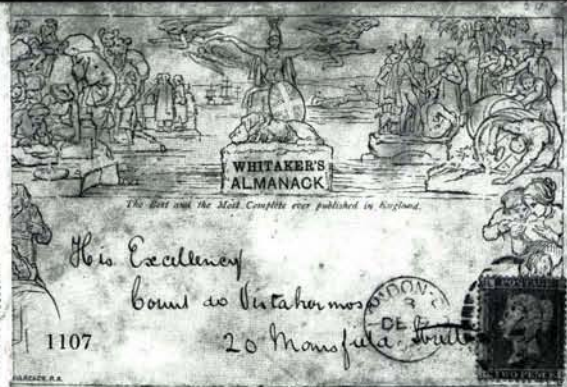 WHITAKER'S
ALMANACK
The Best and the Most Complete ever published in England.
His Excellency
Count do Vistahermosa
20 Mansfield Street
1107
LONDON
3
DE
POSTAGE
TWO PENCE
MULREADY, R.A.